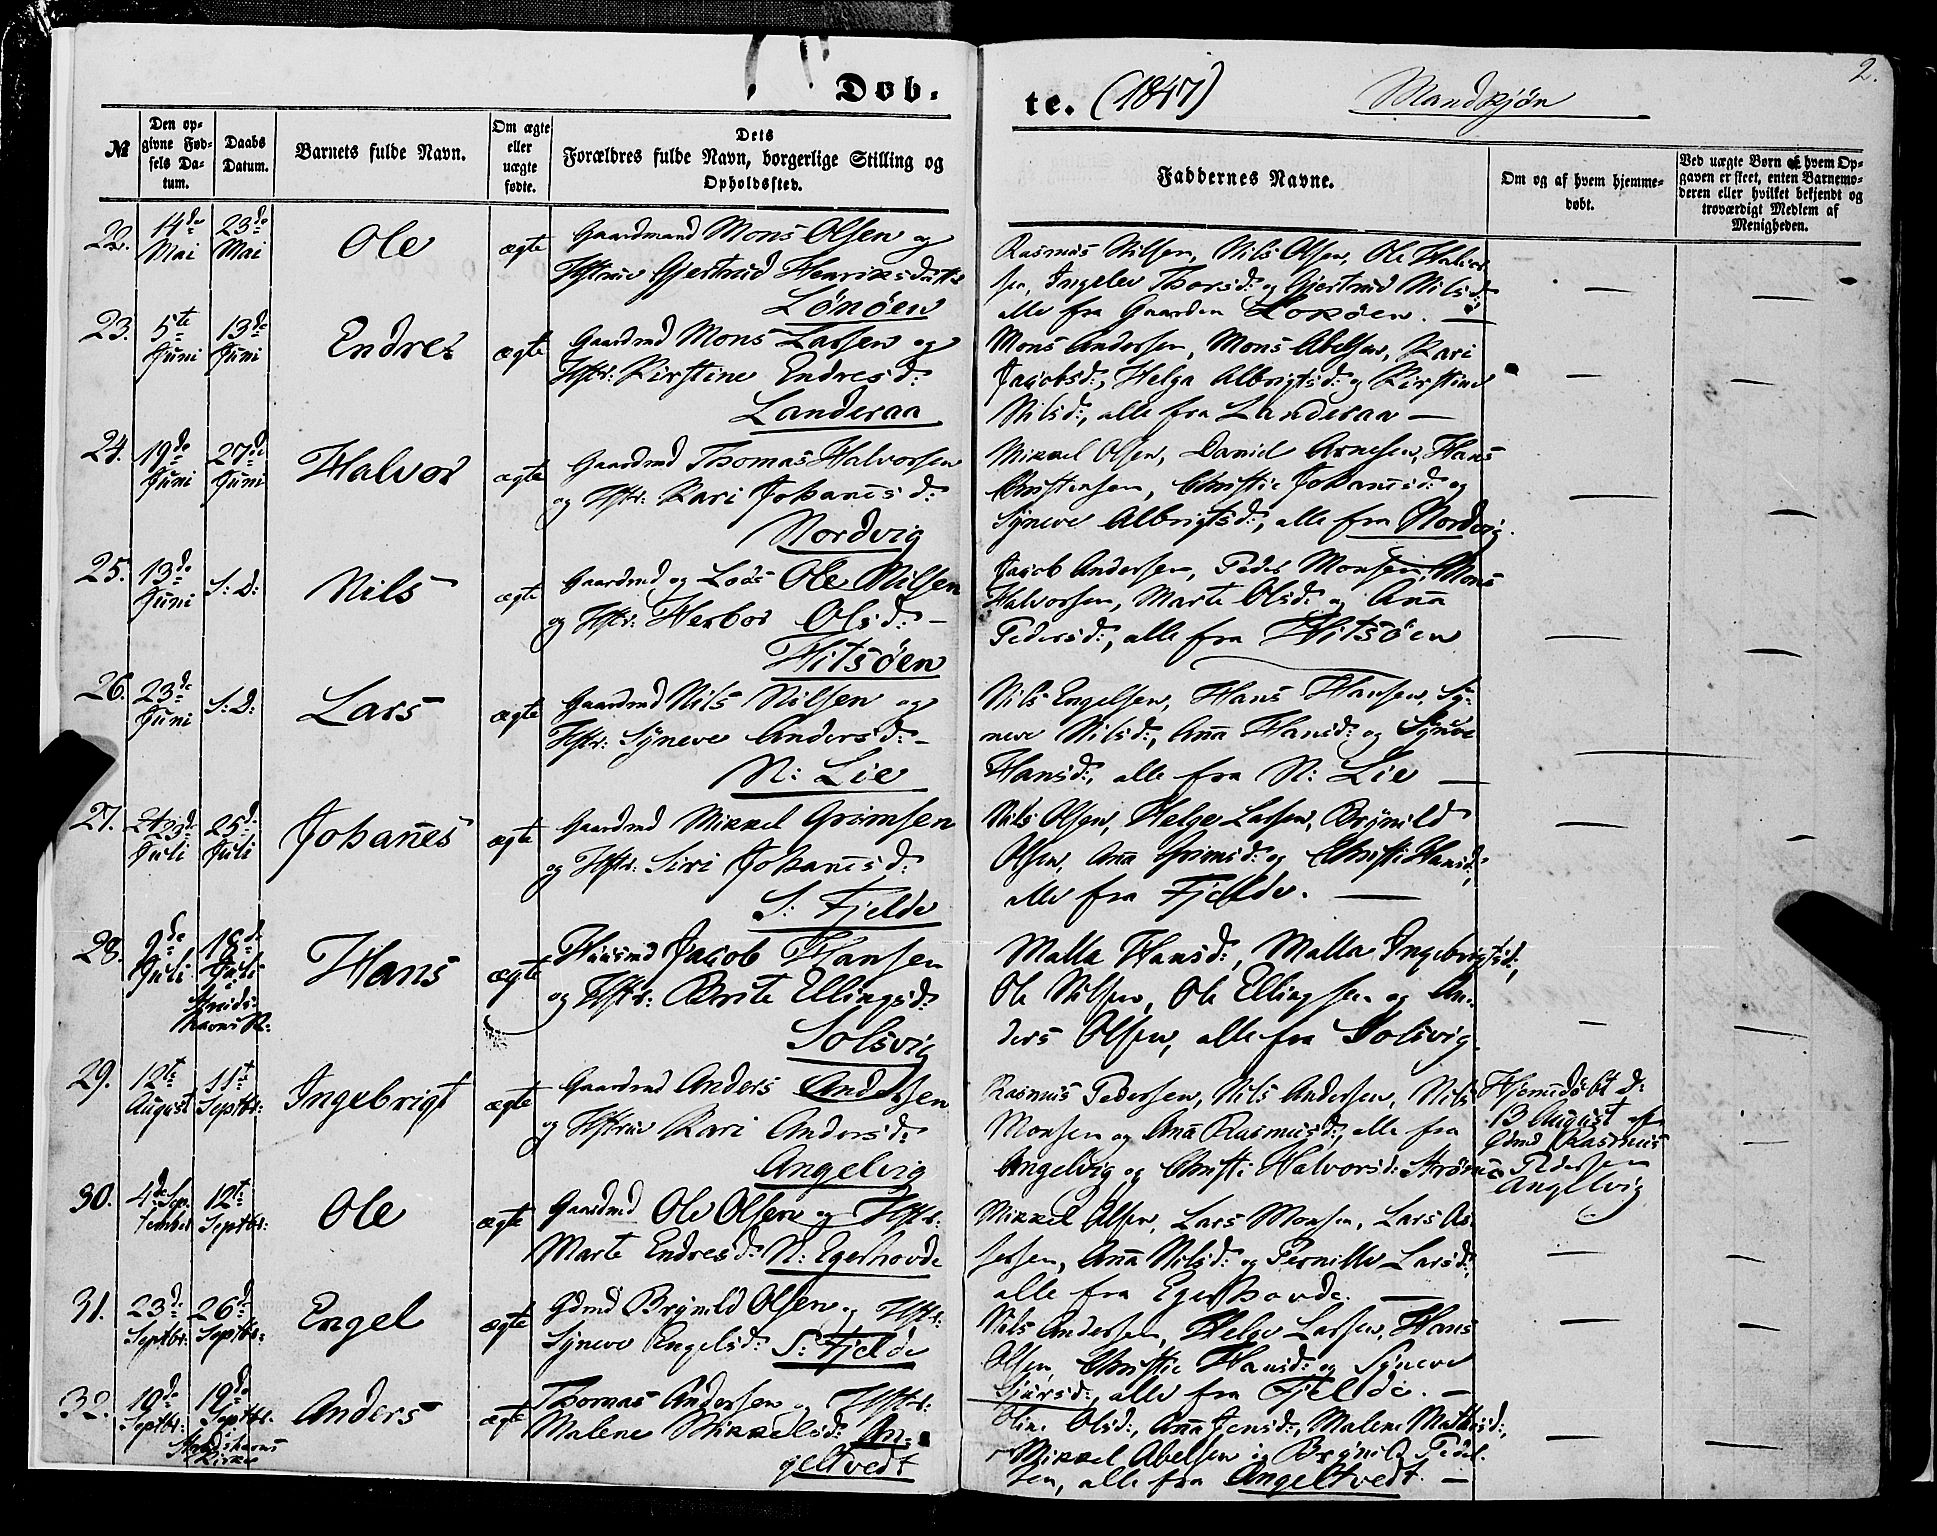 Døb-
te. (1847)
Mandkjøn
2.
№
Den op-
givne Fød-
sels Da-
tum.
Daabs
Datum.
Barnets fulde Navn.
Om ægte
eller
uægte
fødte.
Dets
Forældres fulde Navn, borgerlige Stilling og
Opholdssted.
Faddernes Navne.
Om og af hvem hjemme-
døbt.
Ved uægte Børn af hvem Op-
gaven er skeet, enten Barnemo-
deren eller hvilket bekjendt og
troværdigt Medlem af
Menigheden.
22. 14de Mai 23de Mai Ole ægte
Gaardmand Mons Olsen og
Hstrue Gjertrud Henriksdatter
Lønøen
Rasmus Nilsen, Nils Olsen, Ole Halvor-
sen, Ingelev Thorsd: og Gjertrud Nilsd:
alle fra Gaarden —
23. 5te Juni 13de Juni Endre ægte
Gaardmd Mons Larsen og
Hstr: Kirstine Endresd:
Landeraa
Mons Andersen, Mons Abelsen, Kari
Jacobsd:, Helga Albrigtsd: og Kirstine
Nilsd:, alle fra Landeraa —
24. 19de Juni 27de Juni Halvor ægte
Gaardmd Thomas Halvorsen
og Hstr: Kari Johan̄esd:
Nordvig
Mikkel Olsen, Daniel Arnesen, Hans
Christensen, Christie Johan̄esd: og
Syneve Albrigtsd:, alle fra Nordvig.
25. 13de Juni S: D: Nils ægte
Gaardmd og Lods Ole Nilsen
og Hstr: Herbor Olsd: —
Hitsøen
Jacob Andersen, Peder Monsen, Mons
Halvorsen, Marte Olsd: og An̄a
Pedersd:, alle fra Hitsøen
26. 23de Juni S: D: Lars ægte
Gaardmd Nils Nilsen og
Hstr: Syneve Andersd: —
N: Lie
Nils Engelsen, Hans Hansen, Sy-
neve Nilsd:, An̄a Hansd: og Syneve
Hansd:, alle fra N: Lie —
27. 23de Juli 25de Juli Johan̄es ægte
Gaardmd Mikkel Grimsen
og Hstr: Siri Johan̄esd:
S: Fjelde
Nils Olsen, Helge Larsen, Brynild
Olsen, An̄a Grimsd: og Christi Hansd:,
alle fra Fjelde. —
28. 9de Juli 18de Juli Hans ægte
Huusmd Jacob Hansen
og Hstr: Brite Ellingsd:
Solsvig
Malla Hansd:, Malla Ingebrigtsd:,
Ole Nilsen, Ole Ellingsen og An-
ders Olsen, alle fra Solsvig.
29. 12te August 11te Septbr: Ingebrigt ægte
Gaardmd Anders Andersen
og Hstrue Kari Andersd:
Angelvig
Rasmus Pedersen, Nils Andersen, Nils
Monsen og An̄a Rasmusd:, alle fra
Angelvig og Christi Halvorsd:
Hjem̄edøbt d:
13 August af
Gdmd Rasmus
Pedersen
Angelvig
30. 4de Sep-
tember 12te Septbr: Ole ægte
Gaardmd Ole Olsen og Hstr:
Marte Endresd: N: Egerhovde
Mikkel Olsen, Lars Monsen, Lars As-
sersen, An̄a Nilsd: og Pernille Larsd:,
alle fra Egerhovde. —
31. 23de Septbr: 26de Septbr: Engel ægte
Gdmd Brynild Olsen og Hstr:
Syneve Engelsd: S: Fjelde
Nils Andersen, Helge Larsen, Hans
Olsen, Christie Hansd: og Syneve
Sjursd:, alle fra Fjelde. —
32. 19de Septbr: 19de Septbr: Anders ægte
Thomas Andersen og Hstr:
Malene Mikkelsd: An-
geltvedt
Oline Olsd:, An̄a Jensd:, Malene
Mikkel Abelsen og Brynild Peder-
sen, alle fra Angeltvedt. —